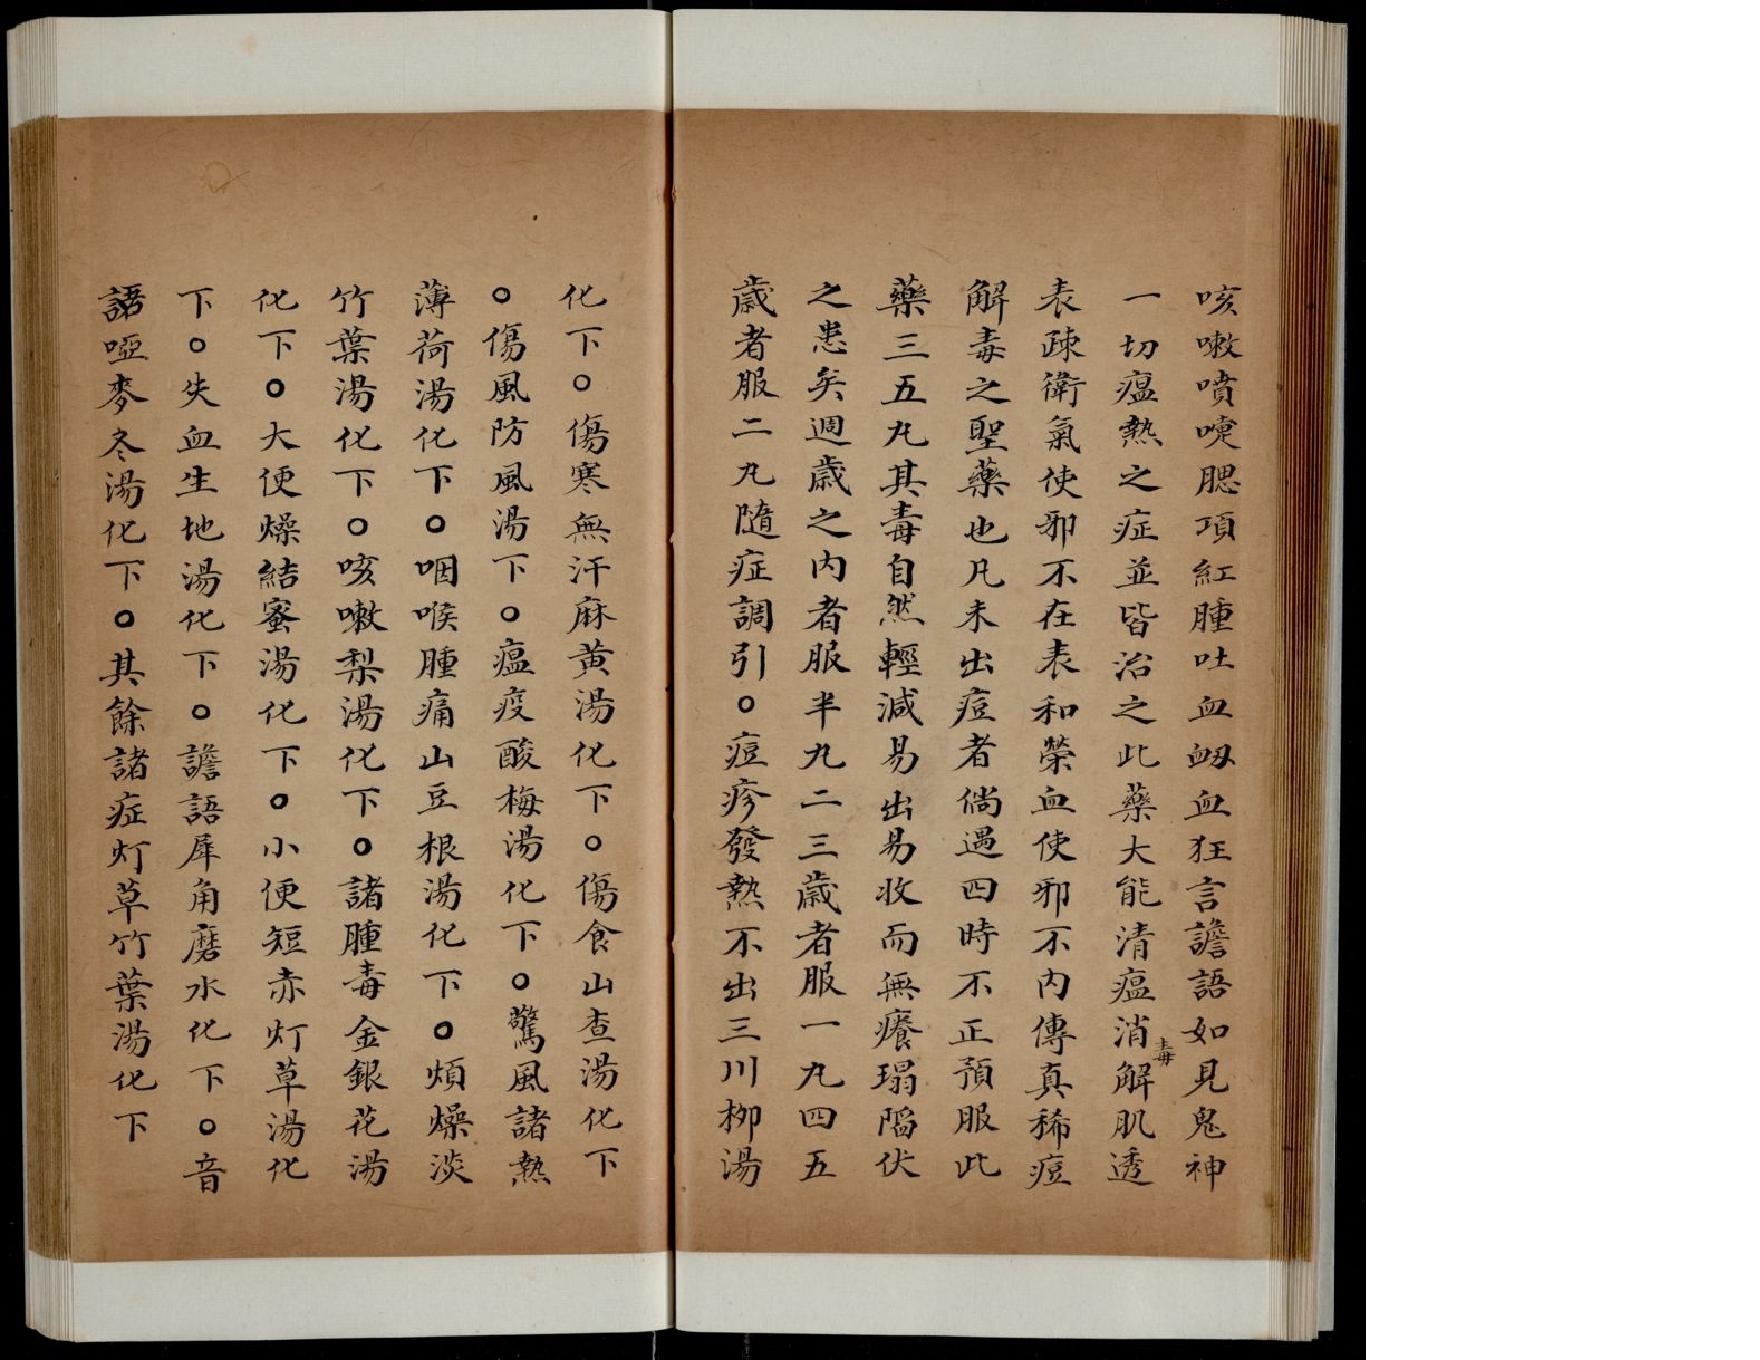 咳嗽噴嚏腮項紅腫吐血衂血狂言譫語如見鬼神
一切瘟熱之症並皆治之此藥大能清瘟消毒解肌透
表疎衛氣使邪不在表和榮血使邪不內傳真稀痘
解毒之聖藥也凡未出痘者倘遇四時不正預服此
藥三五丸其毒自然輕減易出易收而無癢瑒陷伏
之患矣週歲之內者服半丸二三歲者服一丸四五
歲者服二丸隨症調引○痘疹發熱不出三川柳湯
化下○傷寒無汗麻黄湯化下○傷食山查湯化下
○傷風防風湯下○瘟疫酸梅湯化下○驚風諸熱
薄荷湯化下○咽喉腫痛山豆根湯化下○煩燥淡
竹葉湯化下○咳嗽梨湯化下○諸腫毒金銀花湯
化下○大便燥結蜜湯化下○小便短赤灯草湯化
下○失血生地湯化下○譫語犀角磨水化下○音
語啞麥冬湯化下○其餘諸症灯草竹葉湯化下